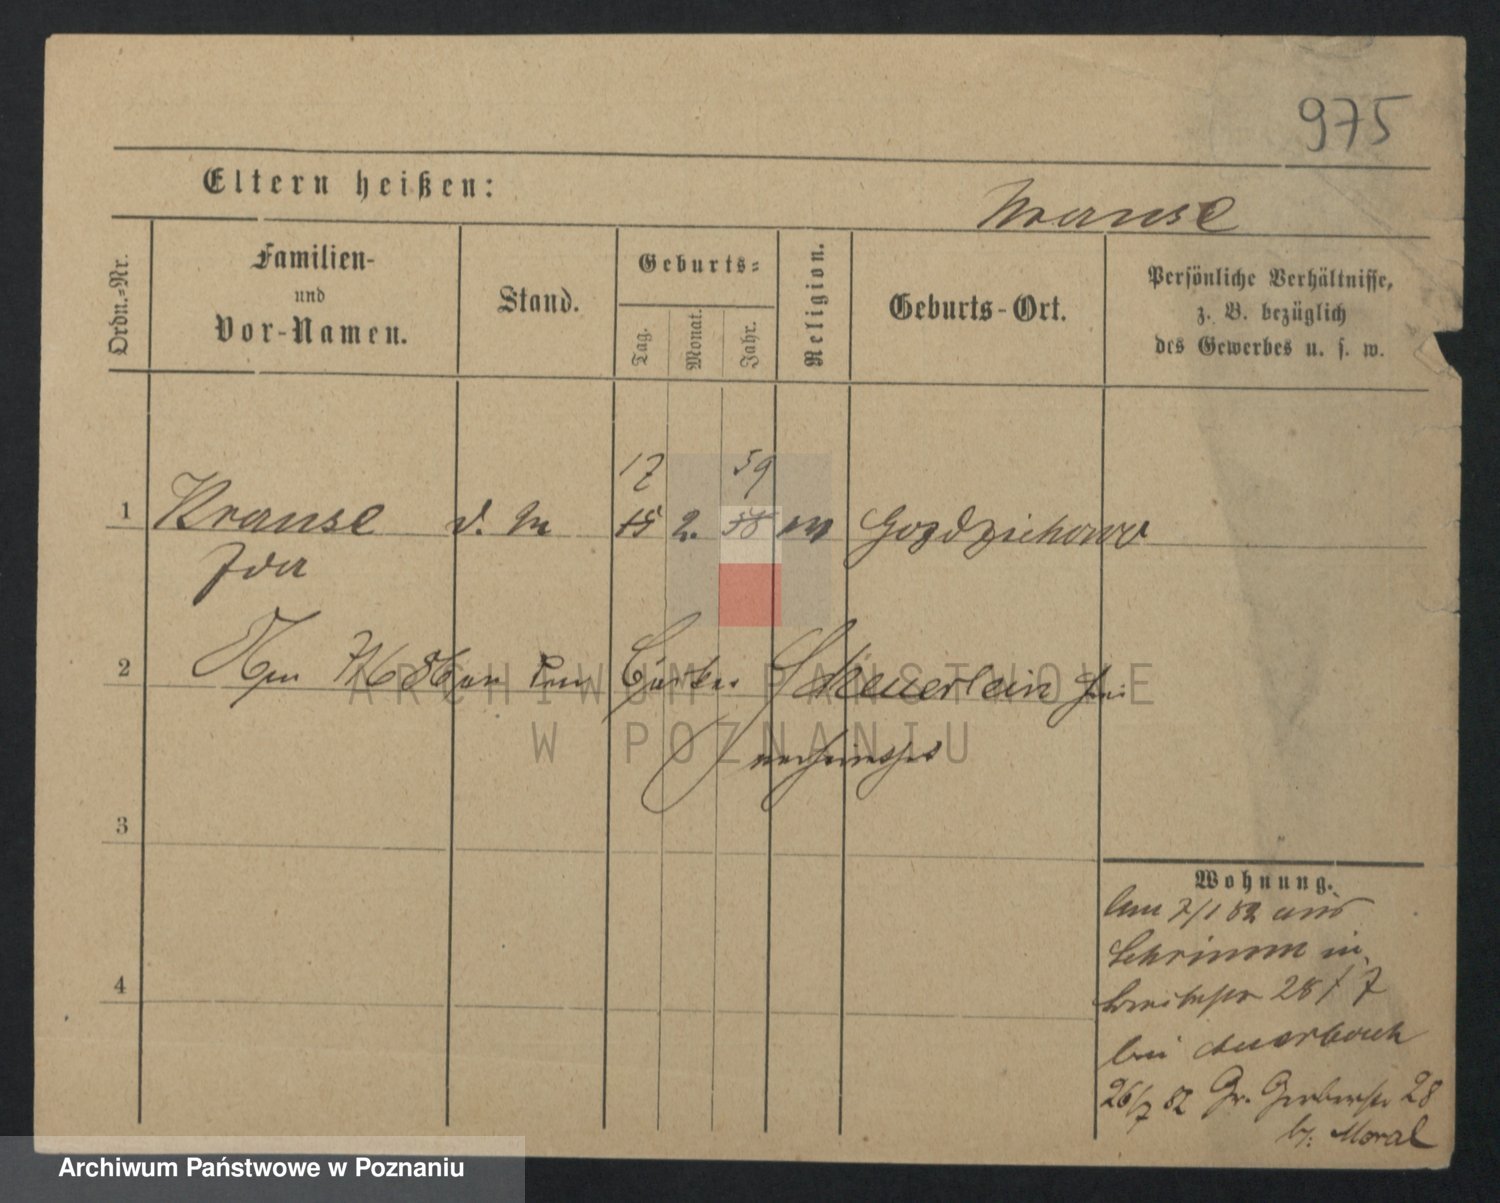 975
Eltern heißen:
Krause
Ordn.-Nr.
Familien-
und
Vor-Namen.
Stand.
Geburts-
Tag.
Monat.
Jahr.
Religion.
Geburts-Ort.
Persönliche Verhältnisse,
z. B. bezüglich
des Gewerbes u. s. w.
17 59
1 Krause d. M 15 2. 58 Gozdzichowo
Ida
2 Scheuerlein
verheirathet
3
4
Wohnung.
Am 7/1 82 aus
Schrimm in
Breitestr 28/7
bei Auerbach
26/7 82 Gr. Gerberstr 28
b. Moral
ARCHIWUM PAŃSTWOWE
W POZNANIU
Archiwum Państwowe w Poznaniu